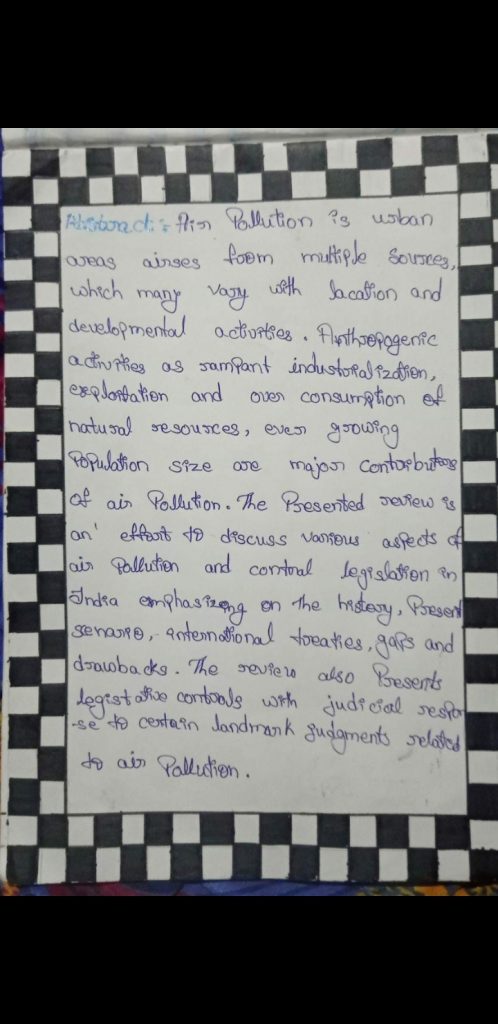 Abstract : Air Pollution is urban
areas airses from multiple Sources,
which many vary with lacation and
developmental activities. Anthropogenic
activities as rampant industrialization,
exploitation and over consumption of
natural resources, ever growing
Population size are major contributors
of air Pollution. The Presented review is
an effort to discuss various aspects of
air Pollution and control legislation in
India emphasizeng on the history, Present
senario, international treaties, gaps and
drawbacks. The review also Presents
legistative controls with judicial respon
-se to certain landmark judgments related
to air Pollution.